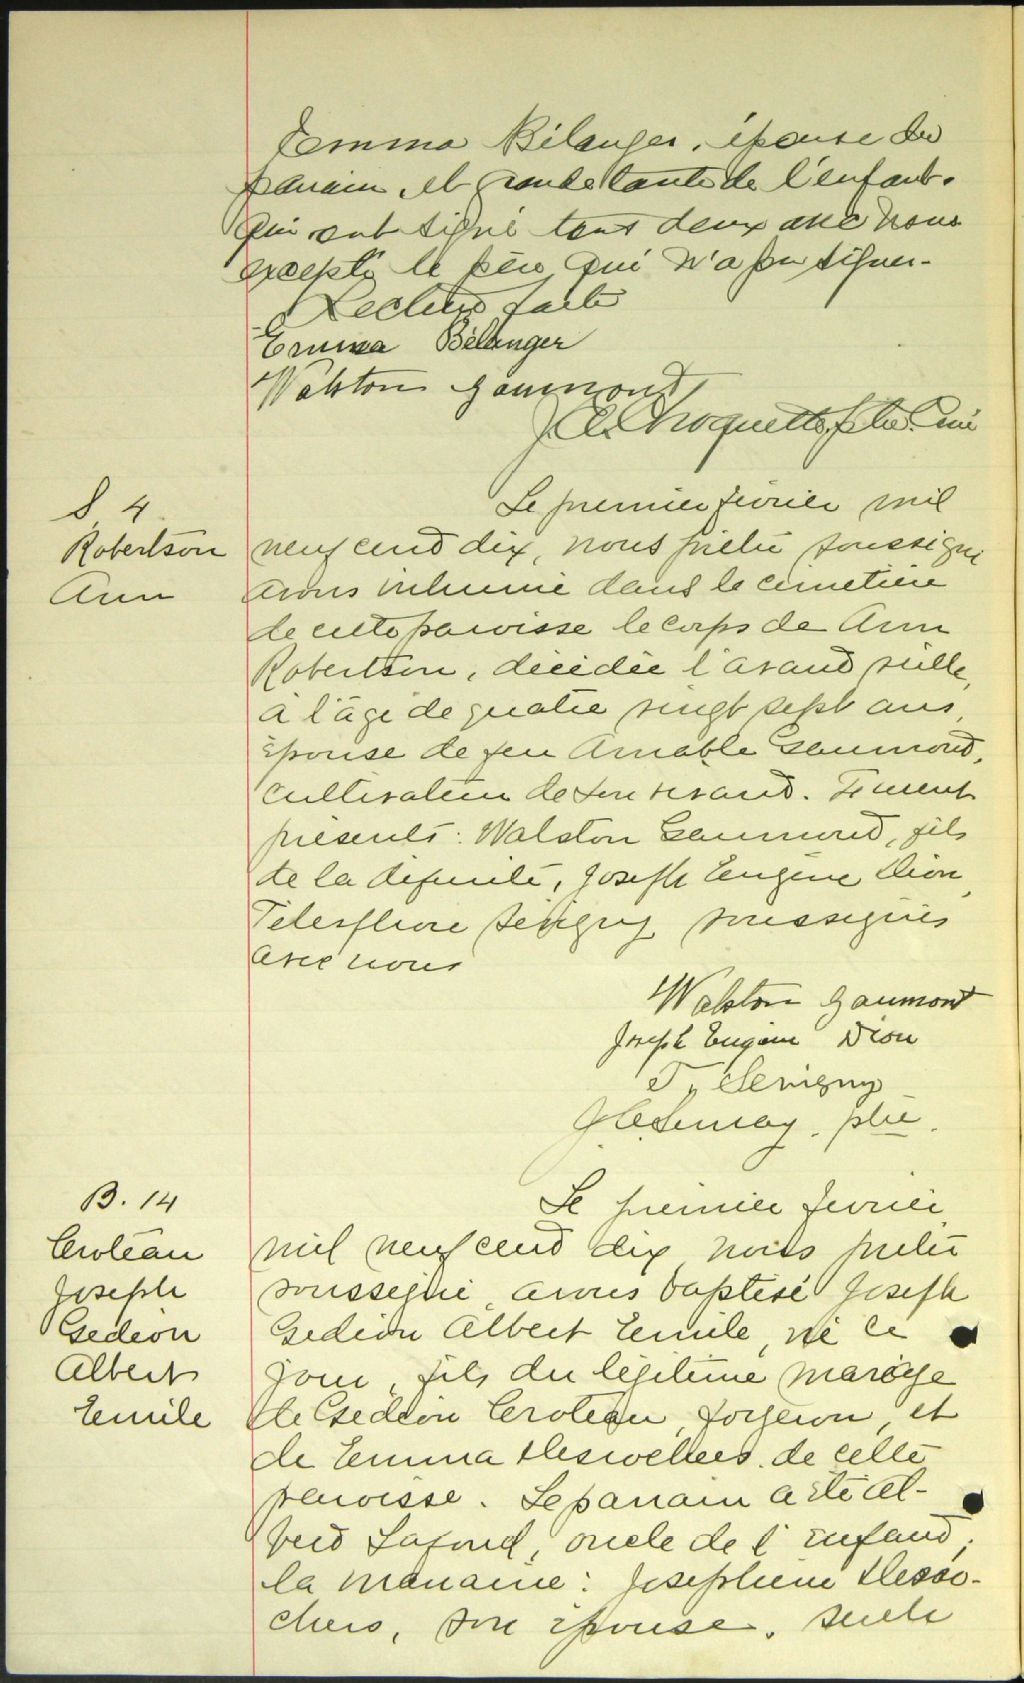 Emma Bélanger, épouse du
parrain, et grande tante de l'enfant.
qui ont signé tous deux avec nous
excepté le père qui n'a pu signer.
Lecture faite
Emma Bélanger
Walston Gaumont
J. E. Choquette, Ptre. Curé
S. 4
Robertson
Ann
Le premier février mil
neuf cent dix, nous prêtre soussigné
avons inhumé dans le cimetière
de cette paroisse le corps de Ann
Robertson, décédée l'avant veille,
à l'âge de quatre vingt sept ans,
épouse de feu Amable Gaumond,
cultivateur de son vivant. Furent
présents: Walston Gaumond, fils
de la défunte, Joseph Eugène Dion,
Télesphore Sévigny soussignés
avec nous
Walston Gaumont
Joseph Eugène Dion
T. Sevigny
ptre.
B. 14
Croteau
Joseph
Gedeon
Albert
Emile
Le premier fevrier
mil neuf cent dix nous prêtre
soussigné avons baptisé Joseph
Gedeon Albert Emile, né ce
jour, fils du légitime mariage
de Gedeon Croteau, forgeron, et
de Emma Desrochers de cette
paroisse. Le parrain a été Al-
bert Lafond, oncle de l'enfant;
la marraine: Josephine Desro-
chers, son épouse.